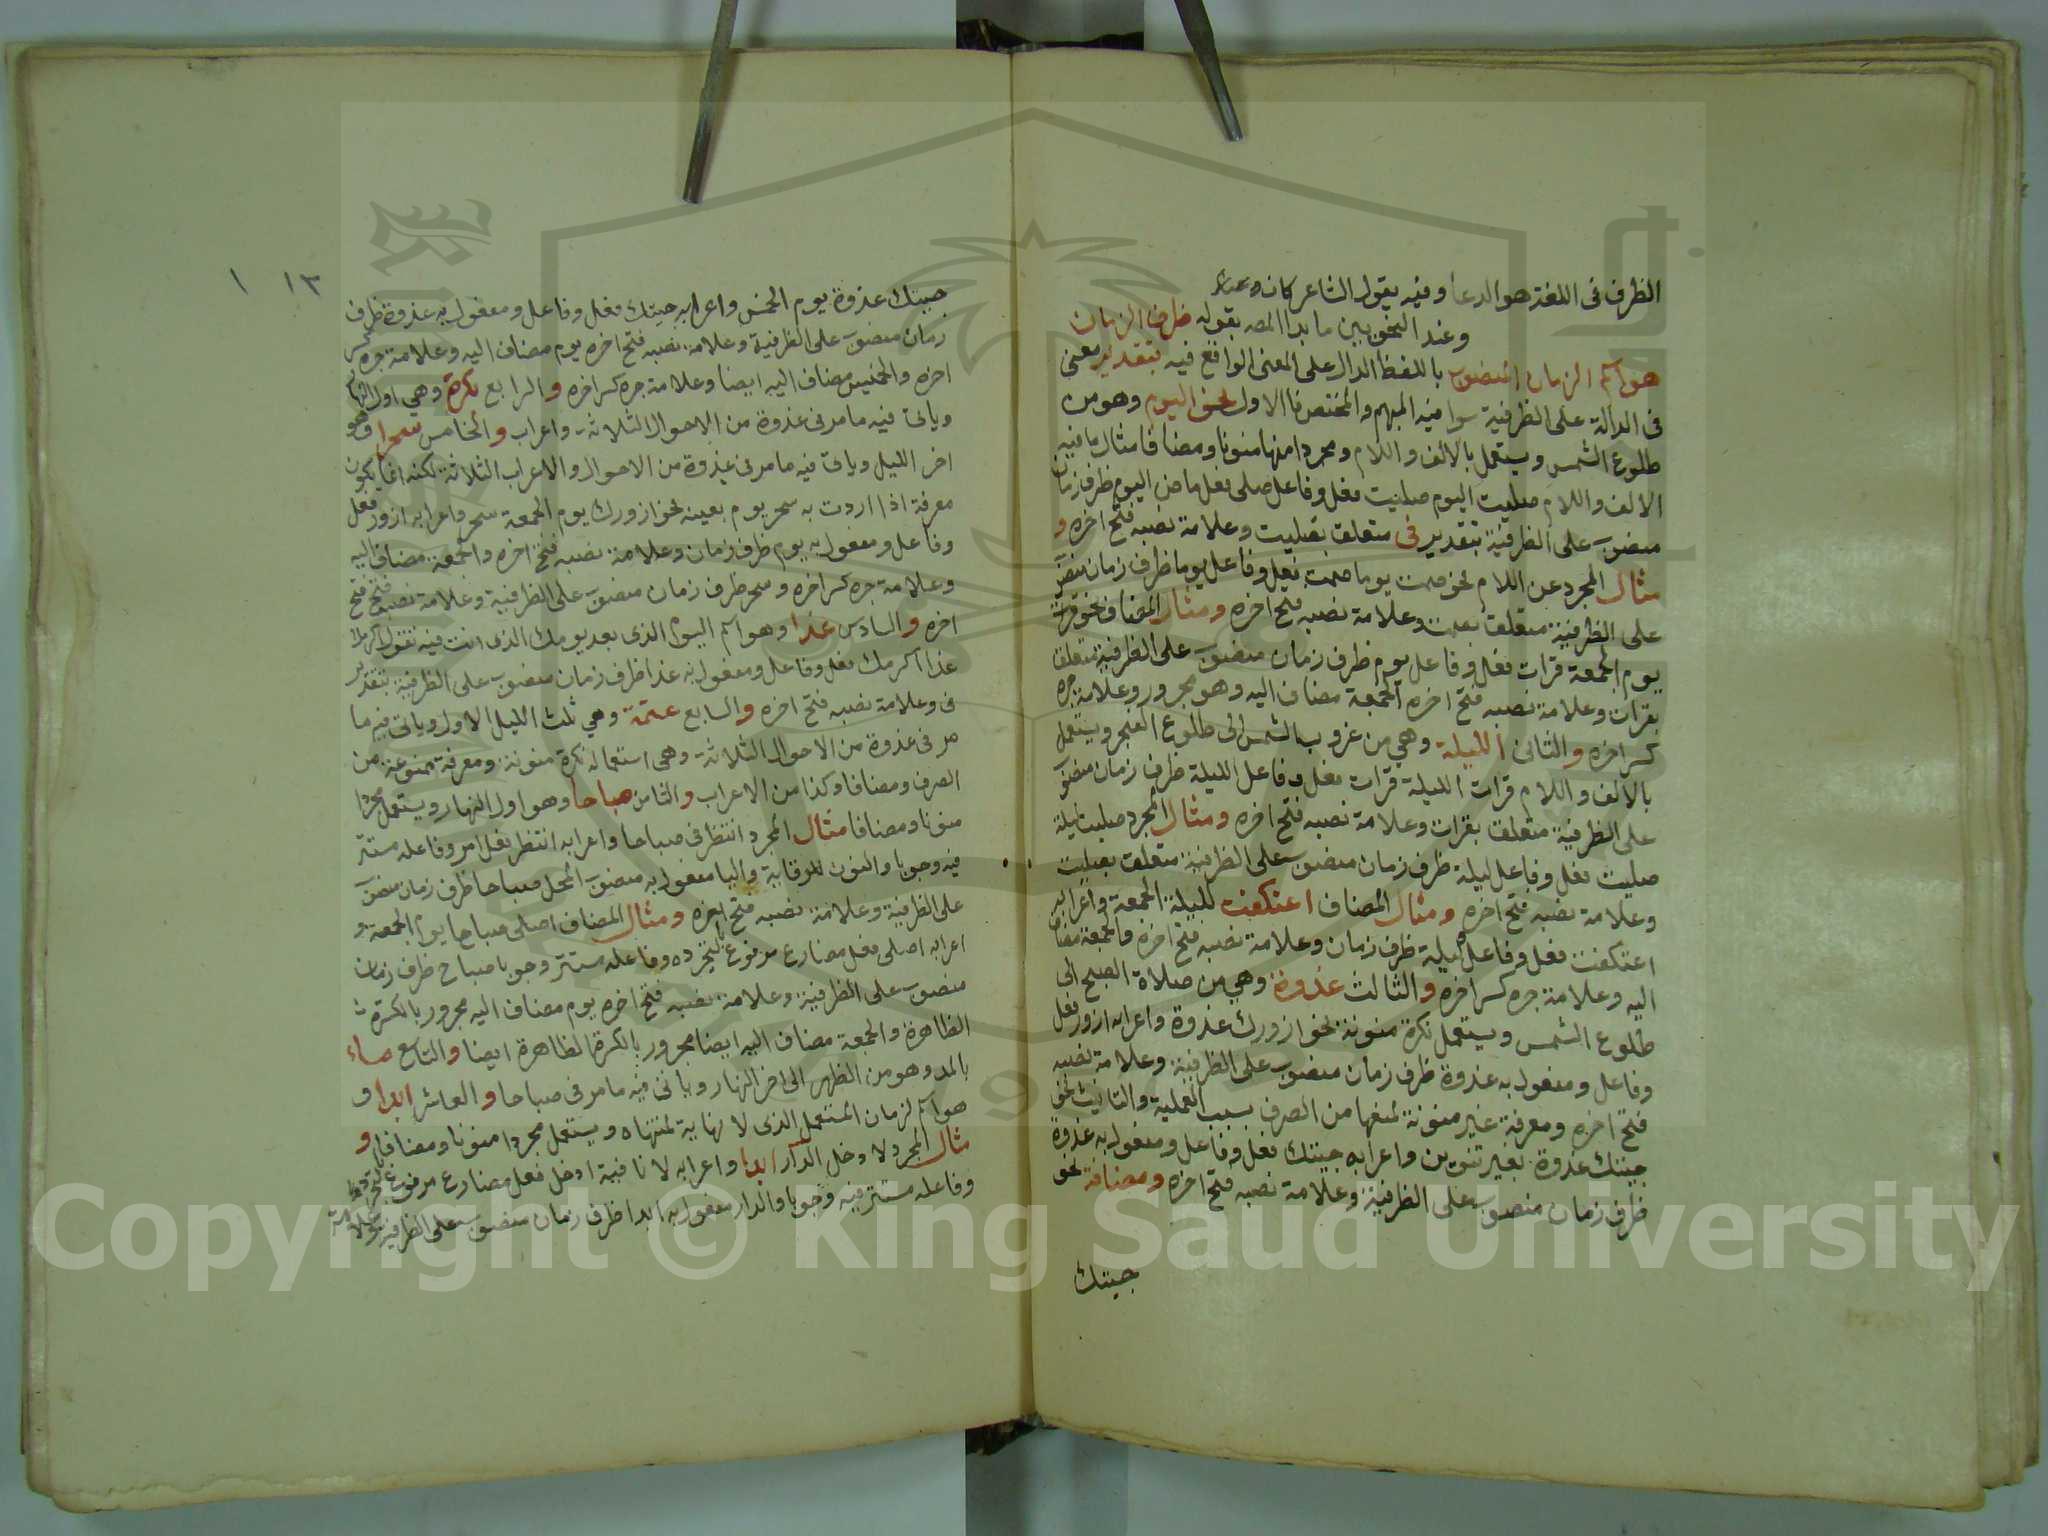 الظرف فى اللغة هو الدعاء وفيه يقول الشاعر كانه
وعند النحويين ما بدا المص بقوله ظرف الزمان
هو اسم الزمان المنصوب باللفظ الدال على المعنى الواقع فيه بتقدير معنى
فى الدالة على الظرفية سوا فيه المبهم والمختص فالاول نحو اليوم وهو من
طلوع الشمس ويستعمل بالالف واللام ومجردا منها منونا ومضافا مثال ما فيه
الالف واللام صليت اليوم صليت فعل وفاعل صلى فعل ماض اليوم ظرف زمان
منصوب على الظرفية بتقدير فى متعلق بصليت وعلامة نصبه فتح اخره و
مثال المجرد عن اللام نحو صمت يوما صمت فعل وفاعل يوما ظرف زمان منصوب
على الظرفية متعلق بصمت وعلامة نصبه فتح اخره ومثال المضاف نحو قرات
يوم الجمعة قرات فعل وفاعل يوم ظرف زمان منصوب على الظرفية متعلق
بقرات وعلامة نصبه فتح اخره الجمعة مضاف اليه وهو مجرور وعلامة جره
كسر اخره والثانى الليلة وهي من غروب الشمس الى طلوع الفجر ويستعمل
بالالف واللام قرات الليلة قرات فعل وفاعل الليلة ظرف زمان منصوب
على الظرفية متعلق بقرات وعلامة نصبه فتح اخره ومثال المجرد صليت ليلة
صليت فعل وفاعل ليلة ظرف زمان منصوب على الظرفية متعلق بصليت
وعلامة نصبه فتح اخره ومثال المضاف اعتكفت لليلة الجمعة واعرابه
اعتكفت فعل وفاعل ليلة ظرف زمان وعلامة نصبه فتح اخره والجمعة مضاف
اليه وعلامة جره كسر اخره والثالث غدوة وهي من صلاة الصبح الى
طلوع الشمس ويستعمل نكرة منونة نحو ازورك غدوة واعرابه ازور فعل
وفاعل ومفعول به غدوة ظرف زمان منصوب على الظرفية وعلامة نصبه
فتح اخره ومعرفة غير منونة لمنعها من الصرف بسبب العلمية والتانيث نحو
جيتك غدوة بغير تنوين واعرابه جيتك فعل وفاعل ومفعول به غدوة
ظرف زمان منصوب على الظرفية وعلامة نصبه فتح اخره ومضافة نحو
جيتك
١٣ ١
جيتك غدوة يوم الخميس واعرابه جيتك فعل وفاعل ومفعول به غدوة ظرف
زمان منصوب على الظرفية وعلامة نصبه فتح اخره يوم مضاف اليه وعلامة جره كسر
اخره والخميس مضاف اليه ايضا وعلامة جره كسر اخره والرابع بكرة وهي اول النهار
وياتى فيه ما مر فى غدوة من الاحوال الثلاثة واعراب والخامس سحرا وهو
اخر الليل وياتى فيه ما مر فى غدوة من الاحوال والاعراب الثلاثة لكنه انما يكون
معرفة اذا اردت به سحر يوم بعينه نحو ازورك يوم الجمعة سحر واعرابه ازور فعل
وفاعل ومفعول به يوم ظرف زمان وعلامة نصبه فتح اخره والجمعة مضاف اليه
وعلامة جره كسر اخره وسحر ظرف زمان منصوب على الظرفية وعلامة نصبه فتح
اخره والسادس غدا وهو اسم اليوم الذى بعد يومك الذى انت فيه تقول اكرمك
غدا اكرمك فعل وفاعل ومفعول به غدا ظرف زمان منصوب على الظرفية بتقدير
فى وعلامة نصبه فتح اخره والسابع عتمة وهي ثلث الليل الاول وياتى فيه ما
مر فى غدوة من الاحوال الثلاثة وهي استعماله نكرة منونة ومعرفة ممنوعة من
الصرف ومضافا وكذا من الاعراب والثامن صباحا وهو اول النهار ويستعمل مجردا
منونا ومضافا مثال المجرد انتظرنى صباحا واعرابه انتظر فعل امر وفاعله مستتر
فيه وجوبا والنون للوقاية واليا مفعول به منصوب المحل صباحا ظرف زمان منصوب
على الظرفية وعلامة نصبه فتح اخره ومثال المضاف اصلى صباحا يوم الجمعة و
اعرابه اصلى فعل مضارع مرفوع لتجرده وفاعله مستتر وجوبا صباح ظرف زمان
منصوب على الظرفية وعلامة نصبه فتح اخره يوم مضاف اليه مجرور بالكسرة
الظاهرة والجمعة مضاف اليه ايضا مجرور بالكسرة الظاهرة ايضا والتاسع مساء
بالمد وهو من الظهر الى اخر النهار وياتى فيه ما مر فى صباحا والعاشر ابدا و
هو اسم لزمان المستعمل الذى لا نهاية لمنتهاه ويستعمل مجردا منونا ومضافا و
مثال المجرد لا دخل الدار ابدا واعرابه لا نافية ادخل فعل مضارع مرفوع
وفاعله مستتر فيه وجوبا والدار مفعول به ابدا ظرف زمان منصوب على الظرفية وعلامة
Copyright © King Saud University